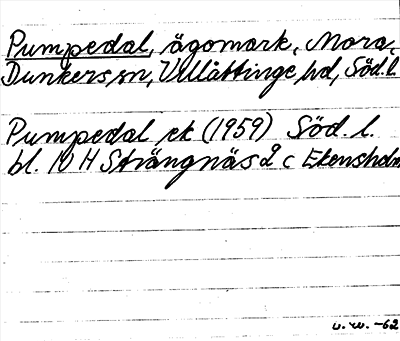 Pumpedal, ägomark, Mora,
Dunkers sn, Villåttinge hd, Söd. l.
Pumpedal ek (1959) Söd. l.
bl. 10 H Strängnäs 2 c Ekensholm
u. w. -62